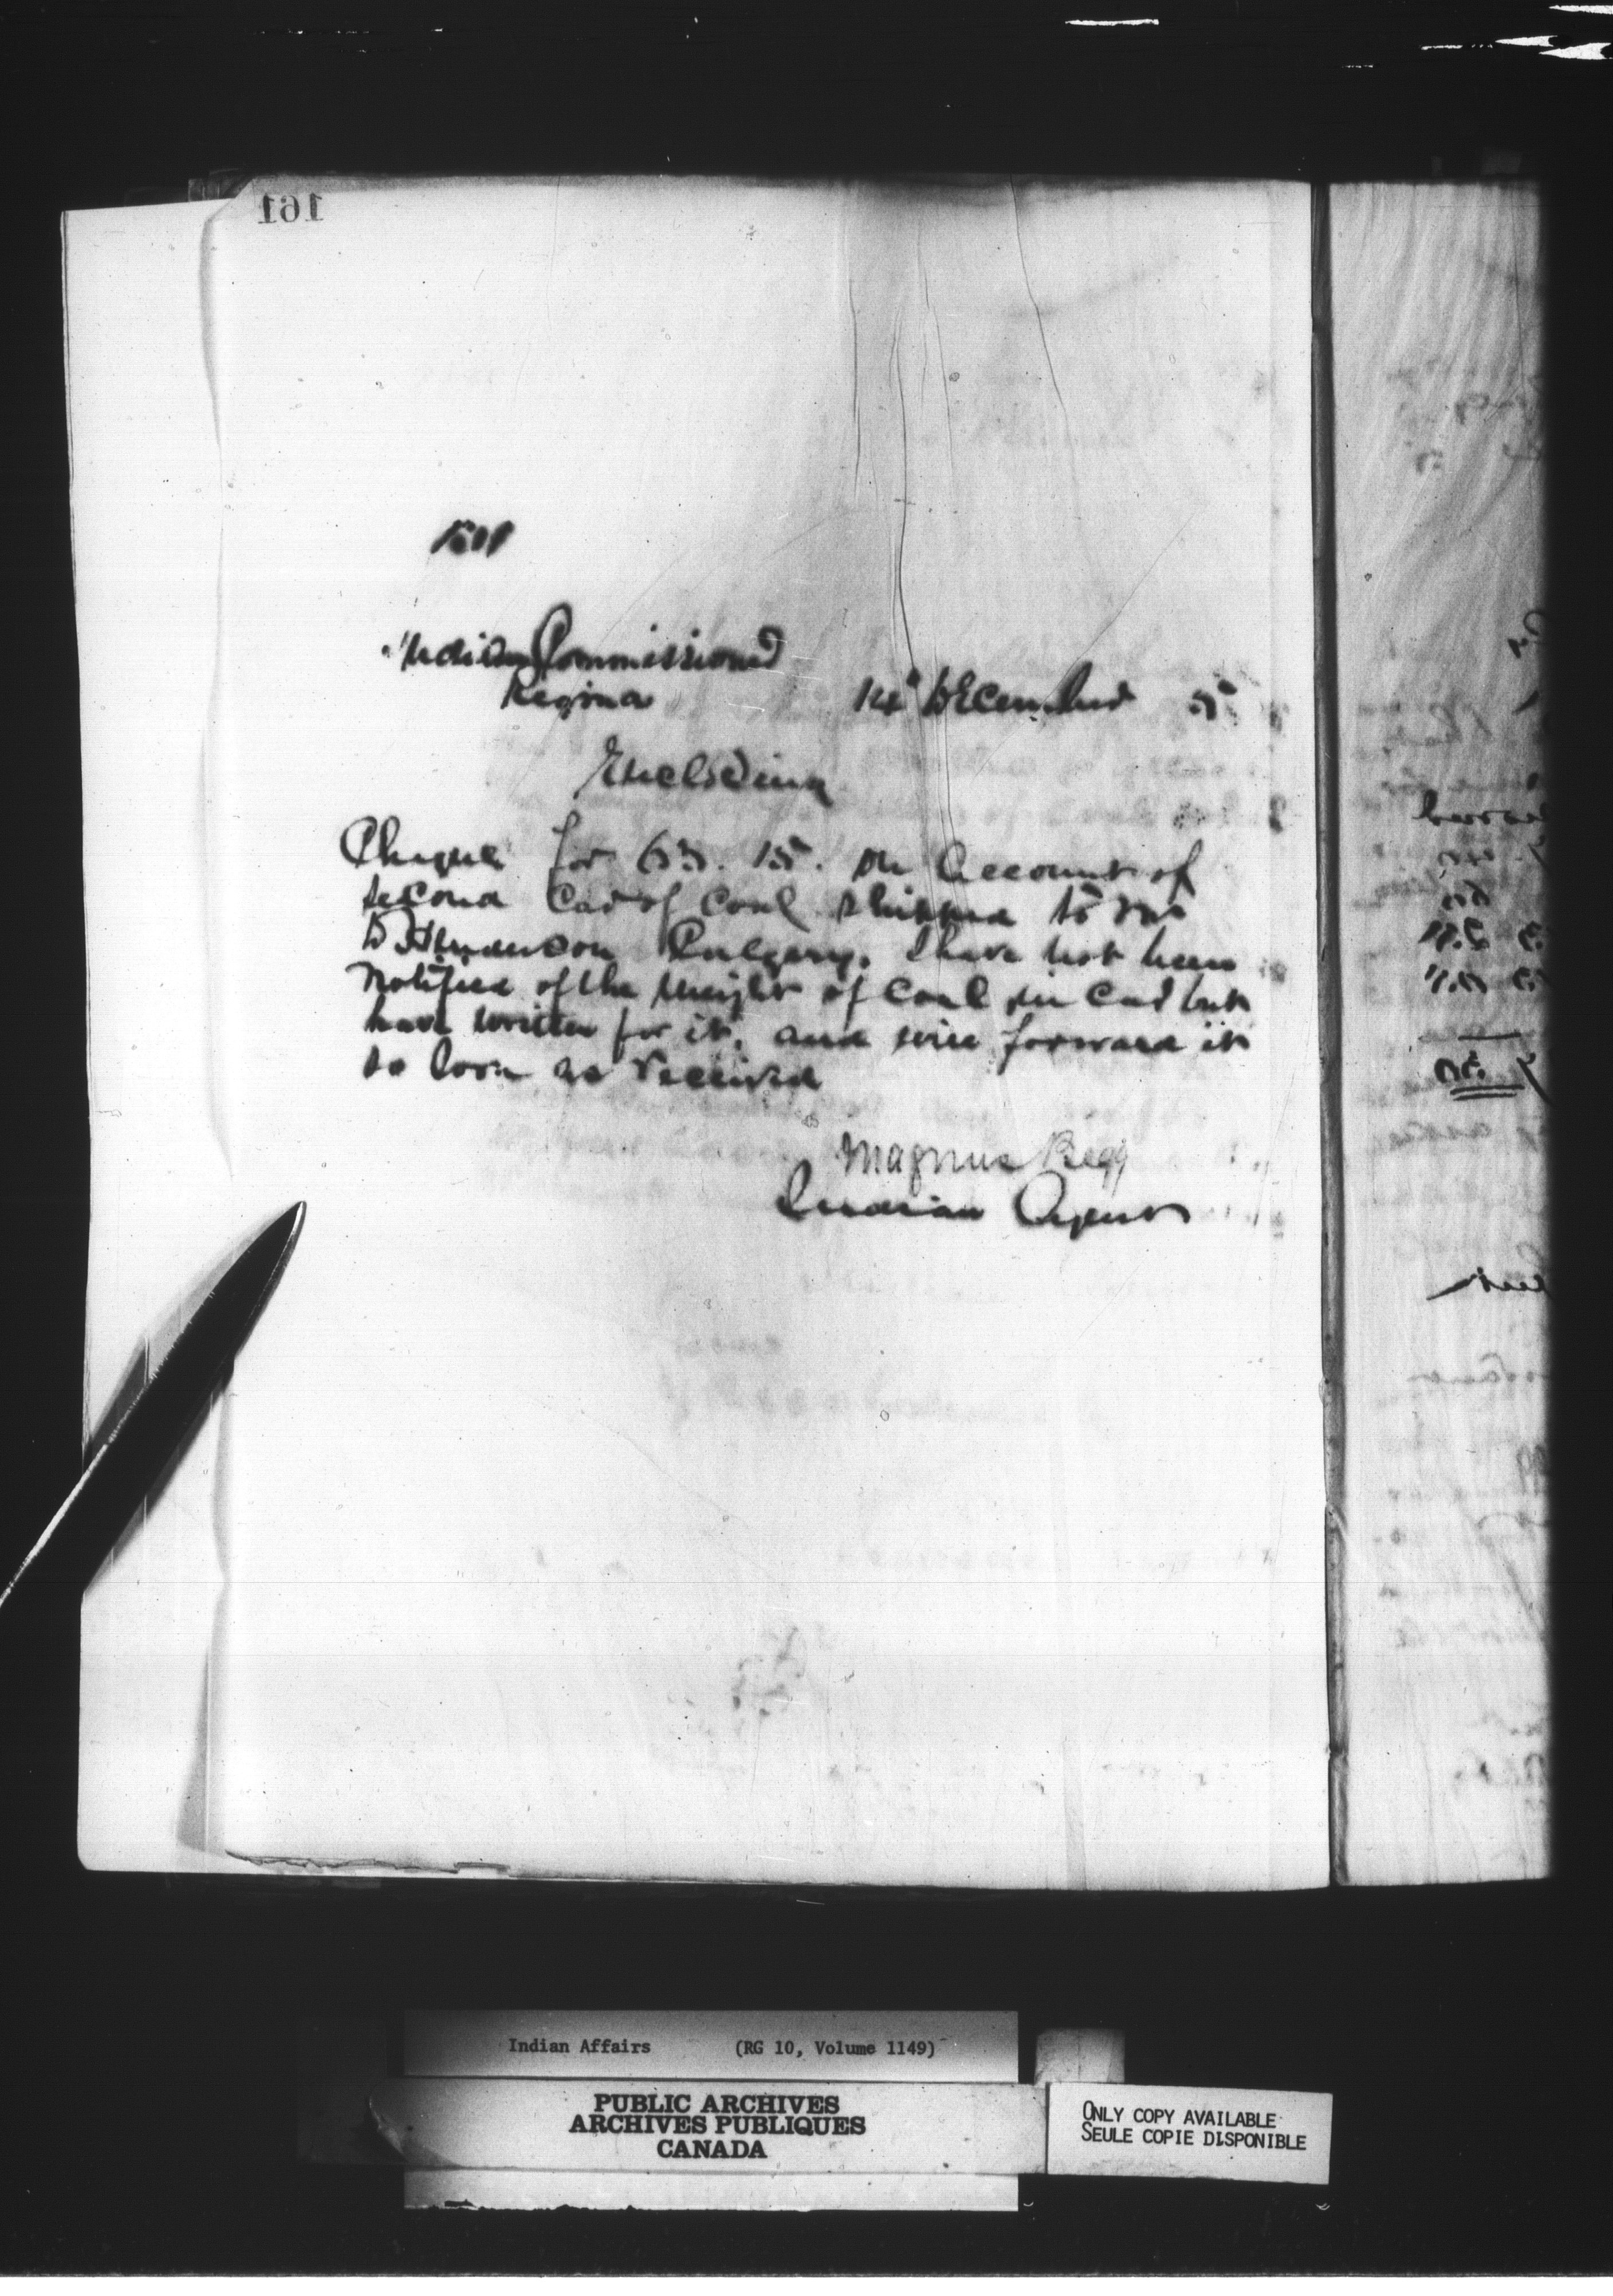 161
Indian Commissioner
Regina 14th December 5
Enclosing
Cheque for 63. 15. on Account of
second Car of Coal shipped to Mr
D Henderson Calgary. I have not been
notified of the weight of Coal in Car but
have written for it, and will forward it
so soon as received
Magnus Begg
Indian Agent
Indian Affairs (RG 10, Volume 1149)
PUBLIC ARCHIVES
ARCHIVES PUBLIQUES
CANADA
ONLY COPY AVAILABLE
SEULE COPIE DISPONIBLE